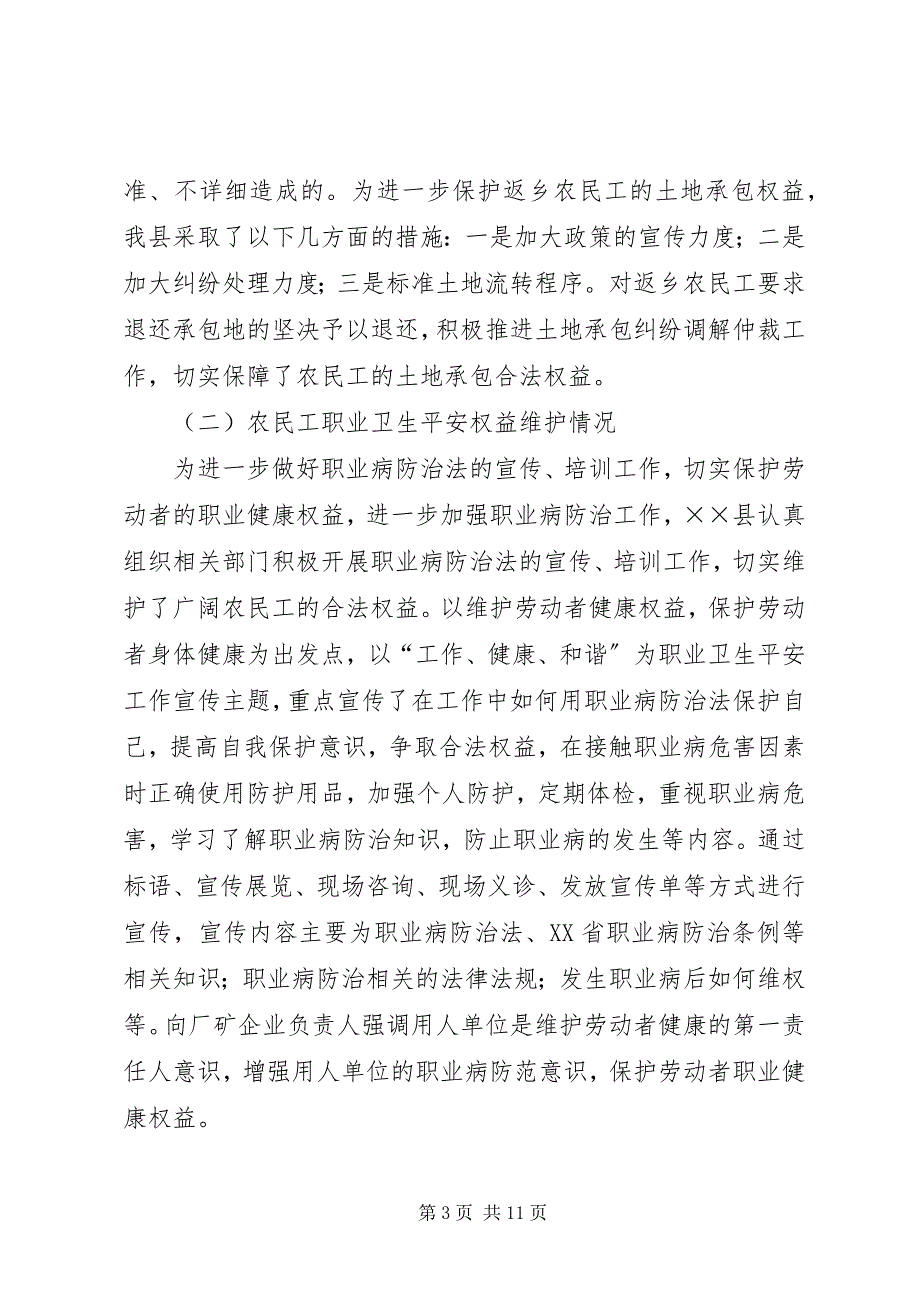 准、不详细造成的。为进一步保护返乡农民工的土地承包权益，
我县采取了以下几方面的措施：一是加大政策的宣传力度；二是
加大纠纷处理力度；三是标准土地流转程序。对返乡农民工要求
退还承包地的坚决予以退还，积极推进土地承包纠纷调解仲裁工
作，切实保障了农民工的土地承包合法权益。
（二）农民工职业卫生平安权益维护情况
为进一步做好职业病防治法的宣传、培训工作，切实保护劳
动者的职业健康权益，进一步加强职业病防治工作，××县认真
组织相关部门积极开展职业病防治法的宣传、培训工作，切实维
护了广阔农民工的合法权益。以维护劳动者健康权益，保护劳动
者身体健康为出发点，以“工作、健康、和谐〞为职业卫生平安
工作宣传主题，重点宣传了在工作中如何用职业病防治法保护自
己，提高自我保护意识，争取合法权益，在接触职业病危害因素
时正确使用防护用品，加强个人防护，定期体检，重视职业病危
害，学习了解职业病防治知识，防止职业病的发生等内容。通过
标语、宣传展览、现场咨询、现场义诊、发放宣传单等方式进行
宣传，宣传内容主要为职业病防治法、XX 省职业病防治条例等
相关知识；职业病防治相关的法律法规；发生职业病后如何维权
等。向厂矿企业负责人强调用人单位是维护劳动者健康的第一责
任人意识，增强用人单位的职业病防范意识，保护劳动者职业健
康权益。
第 3 页 共 11 页